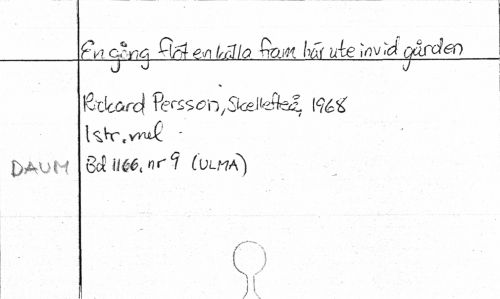 En gång flöt en källa fram här ute invid gården
Rickard Persson, Skellefteå, 1968
1 str. mel
DAUM Bd 1166, nr 9 (ULMA)